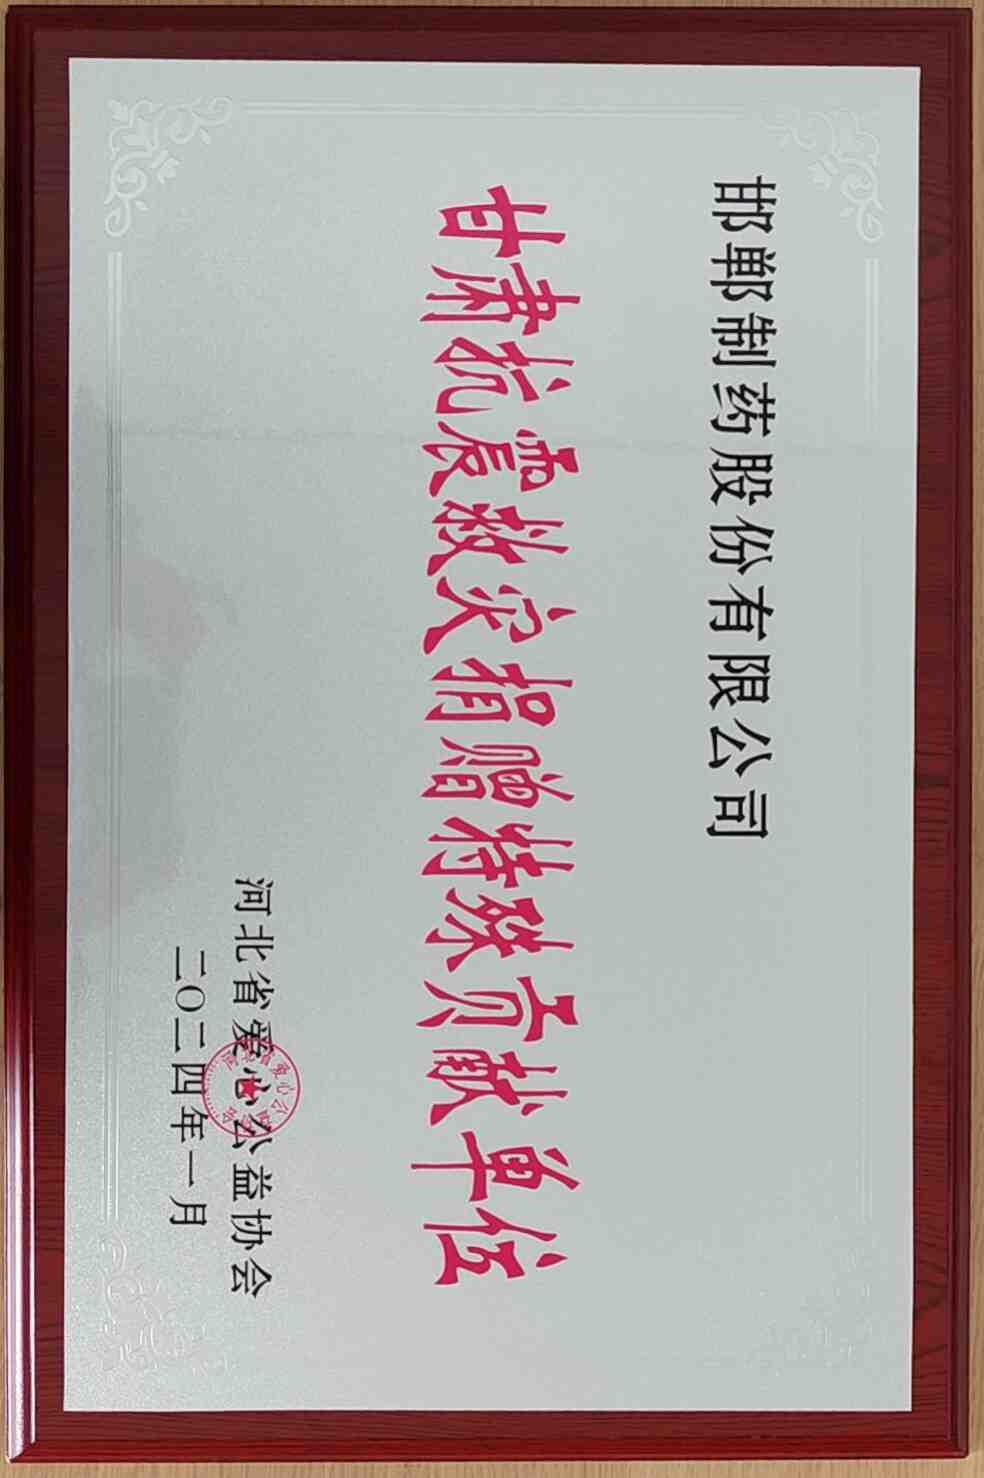 邯郸制药股份有限公司
甘肃抗震救灾捐赠特殊贡献单位
河北省爱心公益协会
二〇二四年一月